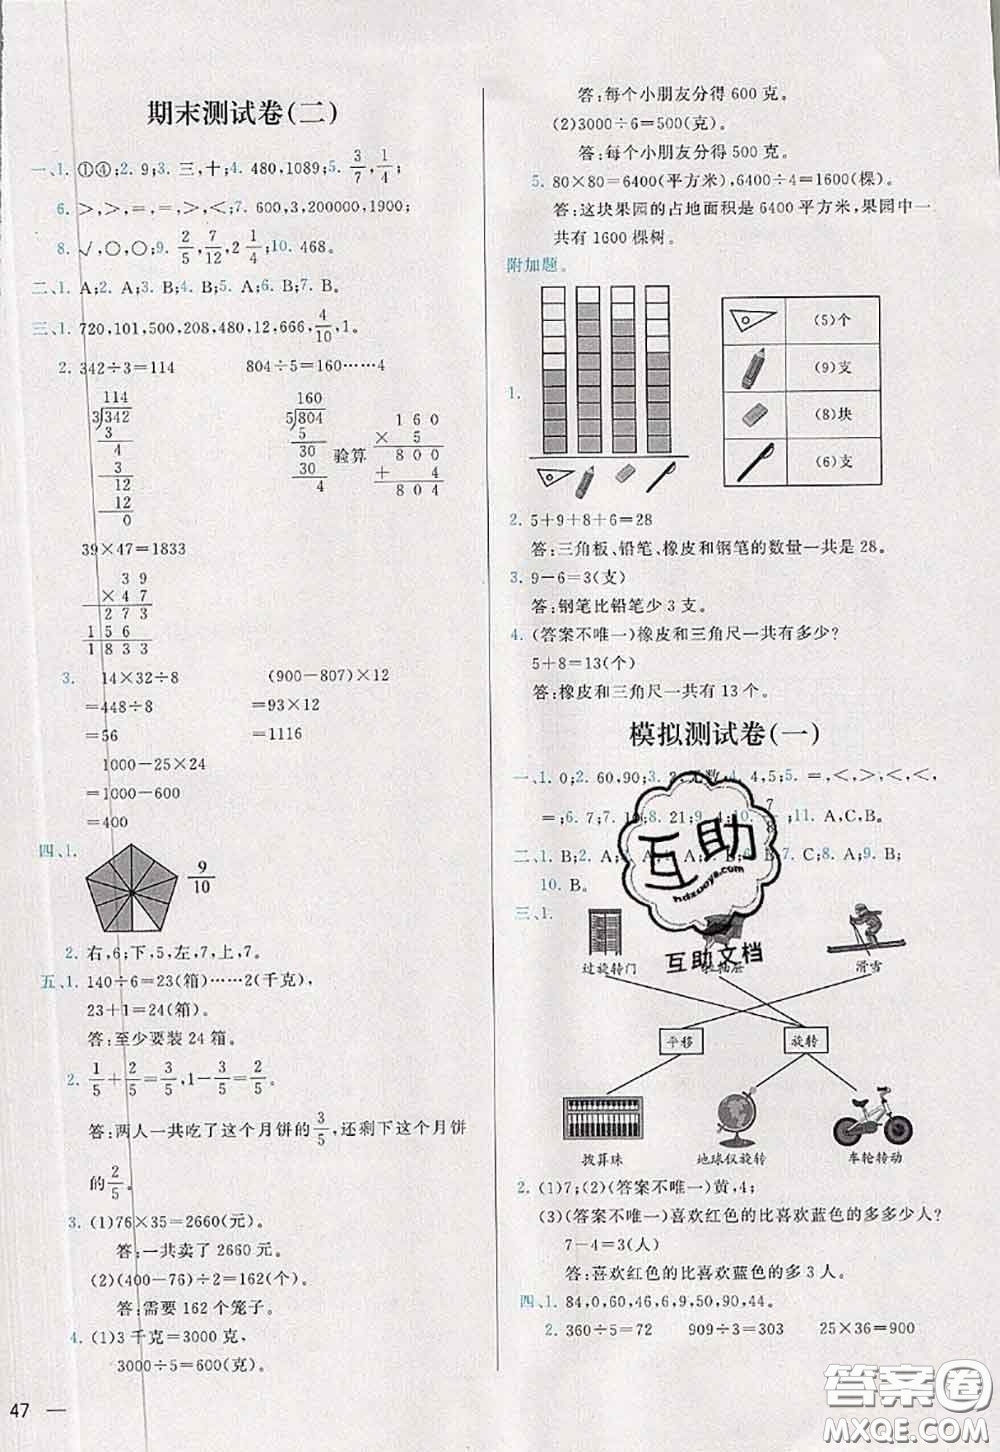 期末测试卷(二)
一、1. ①④;2. 9;3. 三,十;4. 480,1089;5. 3/7,1/4;
6. >,>,=,=,<,<;7. 600,3,200000,1900;
8. √,○,○;9. 2/5,7/12,2 1/4;10. 468。
二、1. A;2. A;3. B;4. B;5. A;6. B;7. B。
三、1. 720,101,500,208,480,12,666,4/10,1。
2. 342÷3=114 804÷5=160……4
114
3)342
3
4
3
12
12
0
160
5)804
5
30
30
4
验算
1 6 0
× 5
8 0 0
+ 4
8 0 4
39×47=1833
3 9
× 4 7
2 7 3
1 5 6
1 8 3 3
3. 14×32÷8 (900-807)×12
=448÷8 =93×12
=56 =1116
1000-25×24
=1000-600
=400
四、1. 9/10
2. 右,6;下,5,左,7,上,7。
五、1. 140÷6=23(箱)……2(千克),
23+1=24(箱)。
答:至少要装 24 箱。
2. 1/5+2/5=3/5,1-3/5=2/5。
答:两人一共吃了这个月饼的3/5,还剩下这个月饼
的2/5。
3. (1)76×35=2660(元)。
答:一共卖了 2660 元。
(2)(400-76)÷2=162(个)。
答:需要 162 个笼子。
4. (1)3 千克=3000 克,
3000÷5=600(克)。
47
答:每个小朋友分得 600 克。
(2)3000÷6=500(克)。
答:每个小朋友分得 500 克。
5. 80×80=6400(平方米),6400÷4=1600(棵)。
答:这块果园的占地面积是 6400 平方米,果园中一
共有 1600 棵树。
附加题。
1.
(5)个
(9)支
(8)块
(6)支
2. 5+9+8+6=28
答:三角板、铅笔、橡皮和钢笔的数量一共是 28。
3. 9-6=3(支)
答:钢笔比铅笔少 3 支。
4. (答案不唯一)橡皮和三角尺一共有多少?
5+8=13(个)
答:橡皮和三角尺一共有 13 个。
模拟测试卷(一)
一、1. 0;2. 60,90;3. 2,无数;4. 4,5;5. =,<,>,<,<,
=;6. 7;7. 10;8. 21;9. 4;10. 7/8;11. A,C,B。
二、1. B;2. A;3. C;4. B;7. C;8. A;9. B;
10. B。
三、1.
过旋转门 滑雪
平移 旋转
拨算珠 地球仪旋转 车轮转动
互助
hdzuoye.com
互助文档
2. (1)7;(2)(答案不唯一)黄,4;
(3)(答案不唯一)喜欢红色的比喜欢蓝色的多多少人?
7-4=3(人)
答:喜欢红色的比喜欢蓝色的多 3 人。
四、1. 84,0,60,46,6,9,50,90,44。
2. 360÷5=72 909÷3=303 25×36=900
答案圈
MXQE.COM